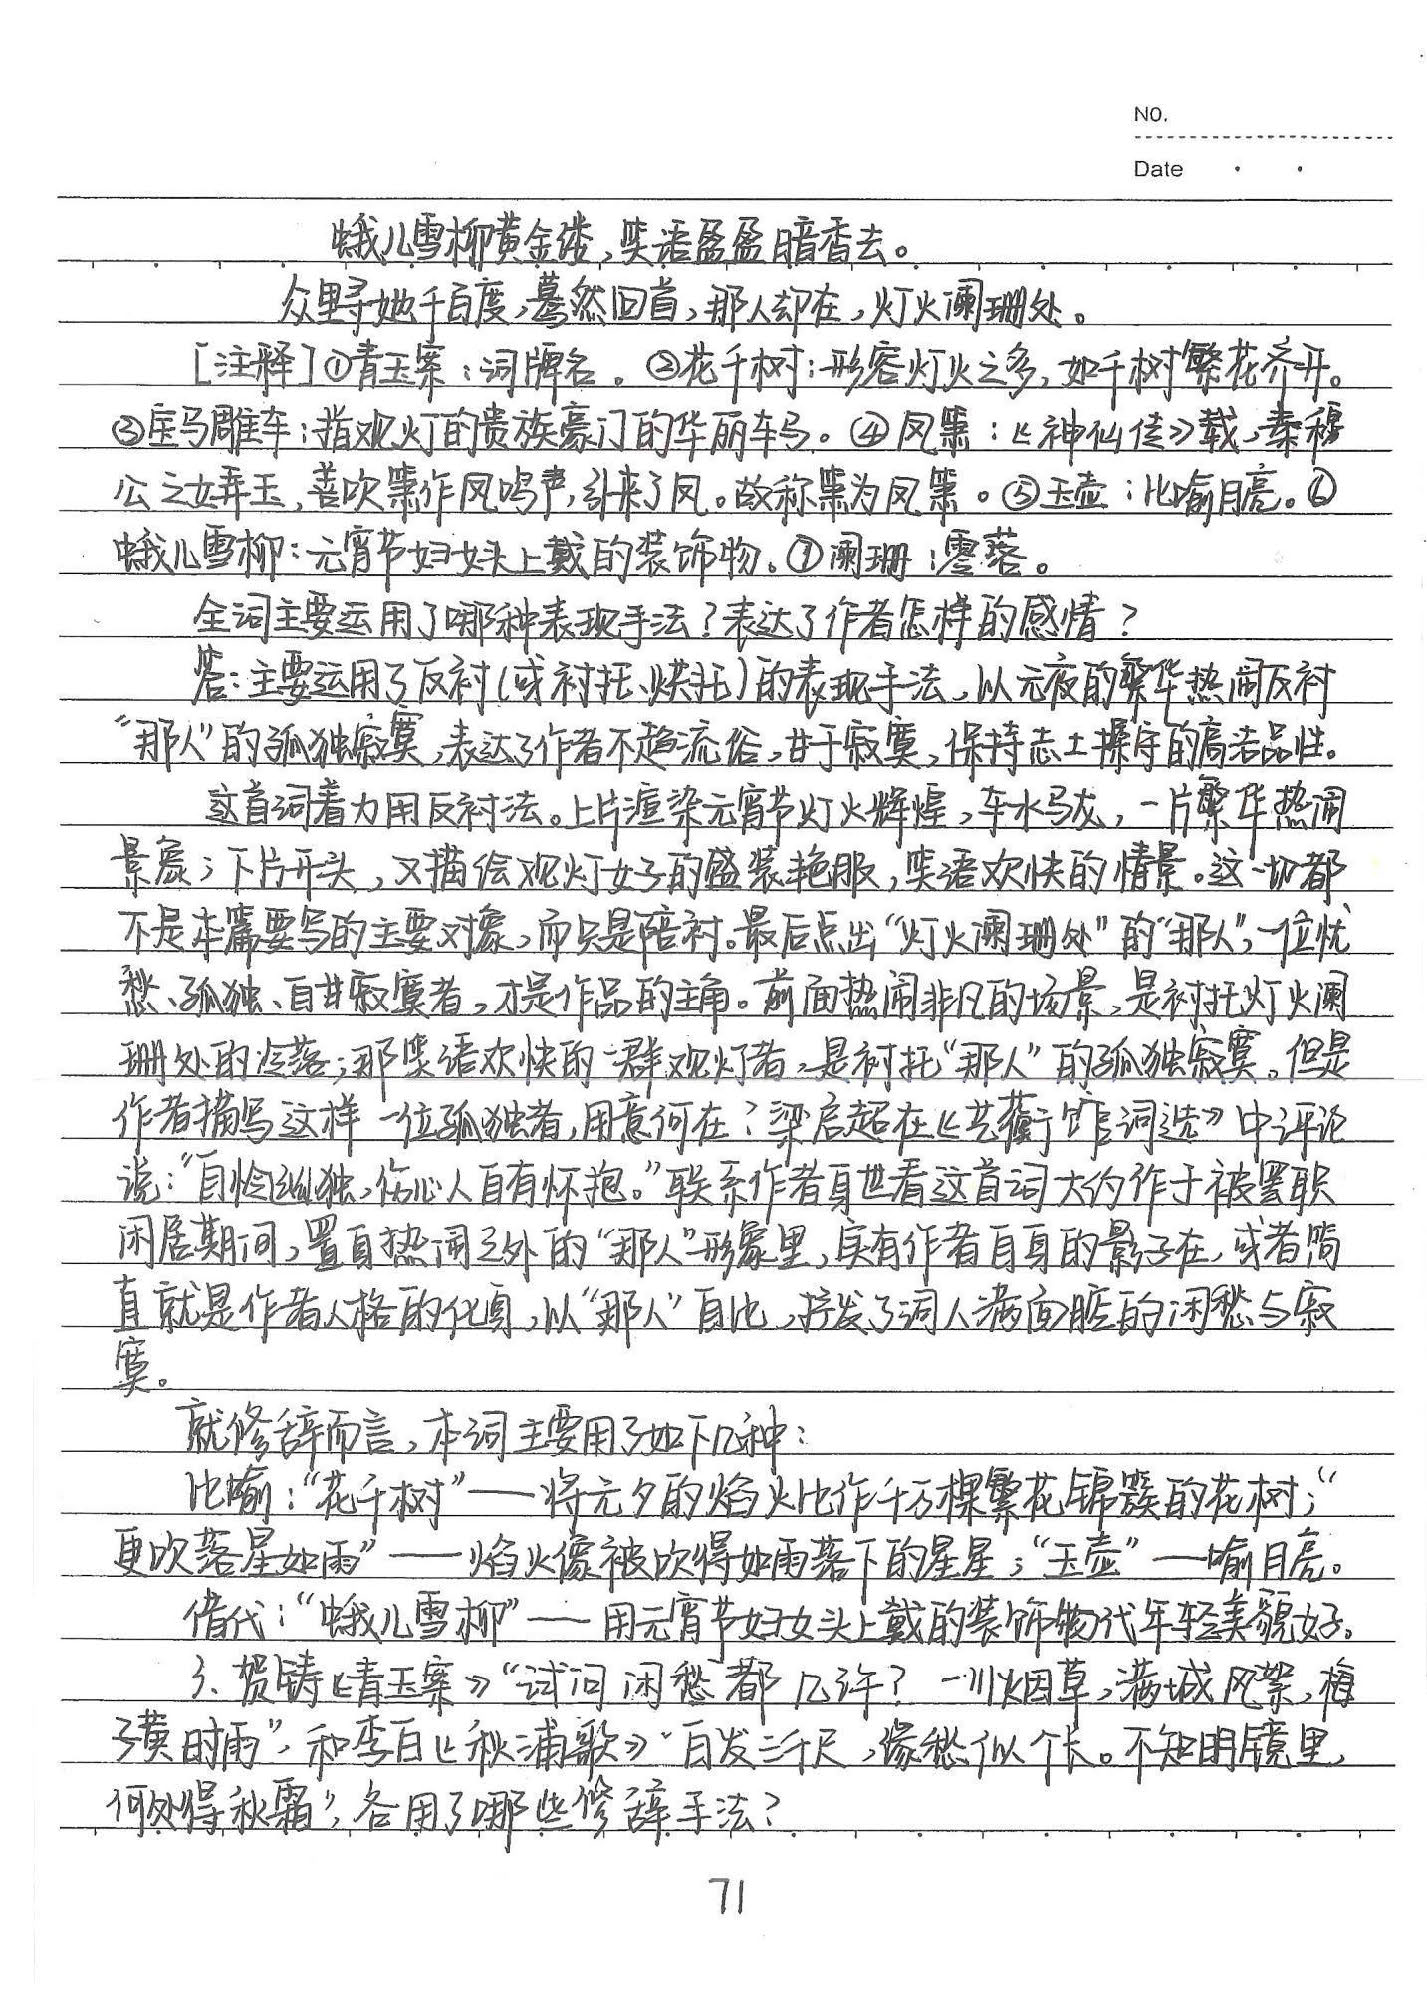 NO.
Date
蛾儿雪柳黄金缕,笑语盈盈暗香去。
众里寻她千百度,蓦然回首,那人却在,灯火阑珊处。
[注释]①青玉案:词牌名。②花千树:形容灯火之多,如千树繁花齐开。
③宝马雕车:指观灯的贵族豪门的华丽车马。④凤箫:《神仙传》载,秦穆
公之女弄玉,善吹箫作凤鸣声,引来了凤。故称箫为凤箫。⑤玉壶:比喻月亮。⑥
蛾儿雪柳:元宵节妇女头上戴的装饰物。⑦阑珊:零落。
全词主要运用了哪种表现手法?表达了作者怎样的感情?
答:主要运用了反衬(或衬托、烘托)的表现手法,以元夜的繁华热闹反衬
“那人”的孤独寂寞,表达了作者不趋流俗,甘于寂寞,保持志士操守的高洁品性。
这首词着力用反衬法。上片渲染元宵节灯火辉煌,车水马龙,一片繁华热闹
景象;下片开头,又描绘观灯女子的盛装艳服,笑语欢快的情景。这一切都
不是本篇要写的主要对象,而只是陪衬。最后点出“灯火阑珊处”的“那人”,一位忧
愁、孤独、自甘寂寞者,才是作品的主角。前面热闹非凡的场景,是衬托灯火阑
珊处的冷落;那笑语欢快的一群观灯者,是衬托“那人”的孤独寂寞。但是
作者描写这样一位孤独者,用意何在?梁启超在《艺蘅馆词选》中评论
说:“自怜幽独,伤心人自有怀抱。”联系作者身世看这首词大约作于被罢职
闲居期间,置身热闹之外的“那人”形象里,实有作者自身的影子在,或者简
直就是作者人格的化身,以“那人”自比,抒发了词人满面腔的闲愁与寂
寞。
就修辞而言,本词主要用了如下几种:
比喻:“花千树”——将元夕的焰火比作千万棵繁花锦簇的花树;“
更吹落星如雨”——焰火像被吹得如雨落下的星星;“玉壶”——喻月亮。
借代:“蛾儿雪柳”——用元宵节妇女头上戴的装饰物代年轻美貌女子。
3、贺铸《青玉案》“试问闲愁都几许?一川烟草,满城风絮,梅
子黄时雨”,和李白《秋浦歌》“白发三千尺,缘愁似个长。不知明镜里,
何处得秋霜”,各用了哪些修辞手法?
71